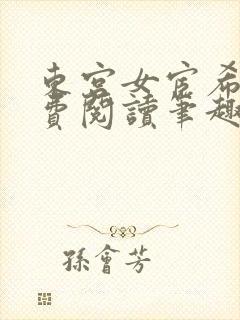 東宮女宦希
費閱讀筆趣
孫會芳